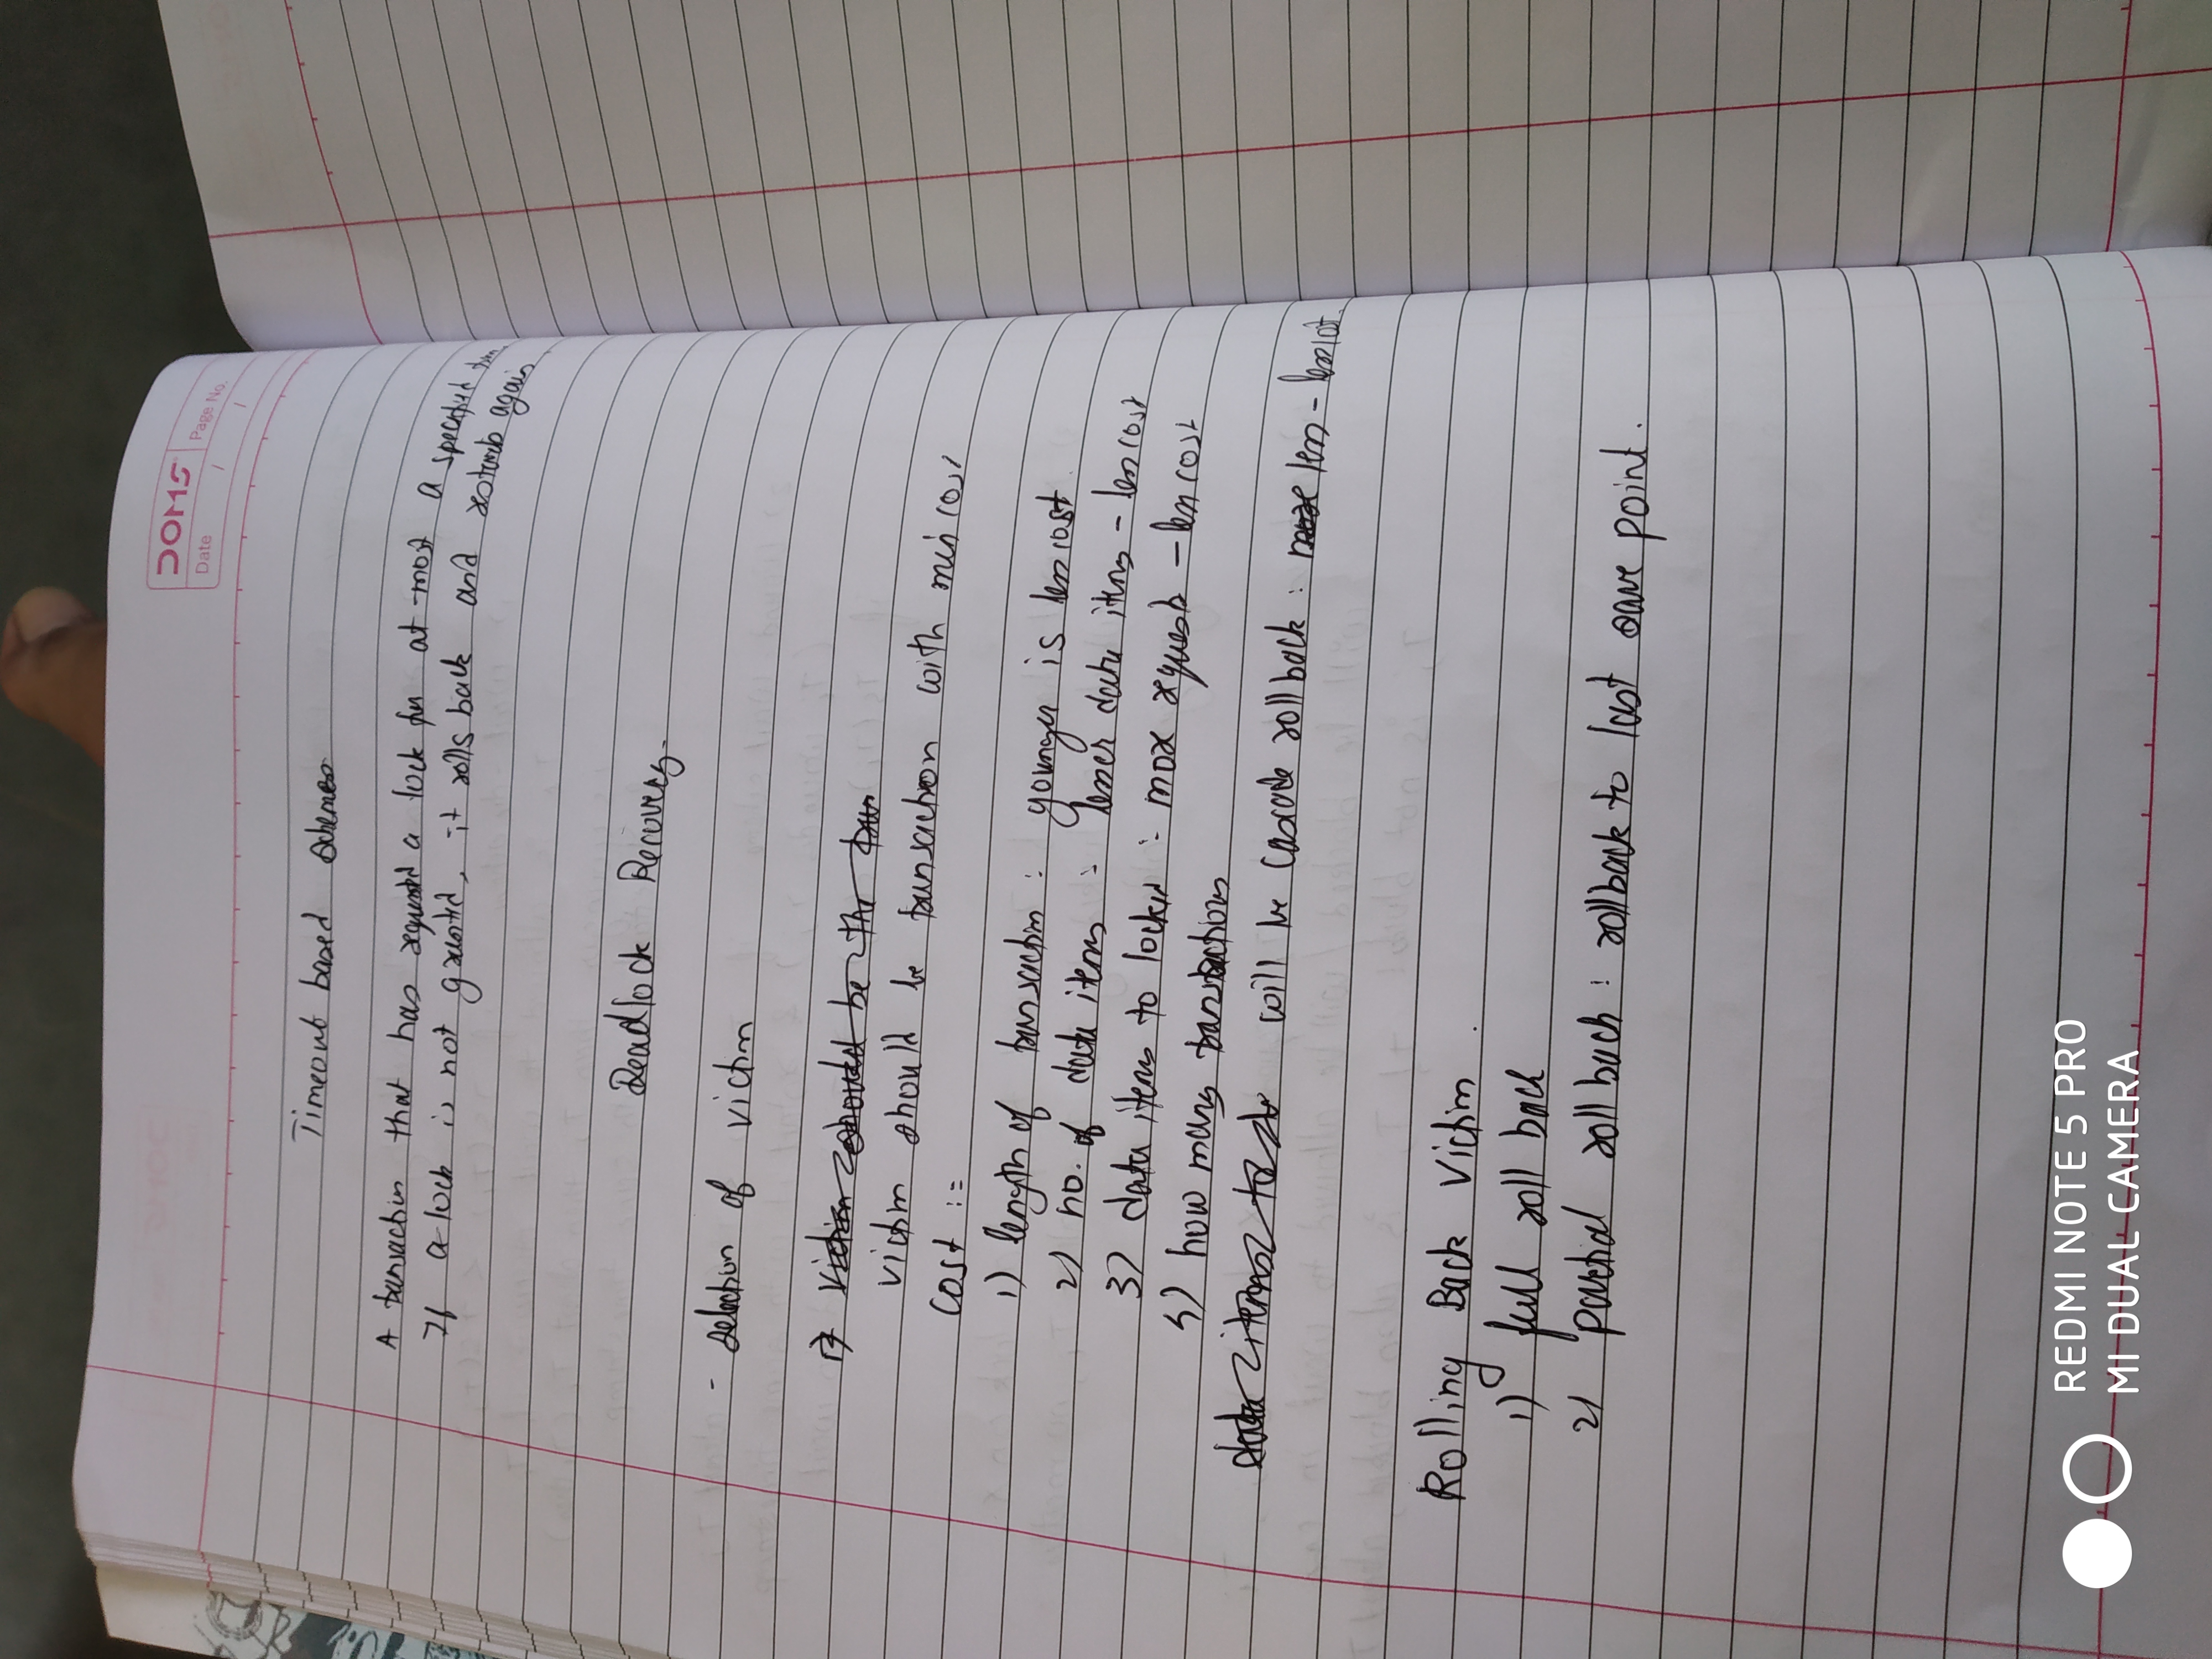 DOMS
Date / / Page No.
Timeout based schemes
A transaction that has requested a lock for at-most a specified time
If a lock is not granted, it rolls back and restarts again.
Deadlock Recovery.
- selection of victim
1) Victim should be the tran
victim should be transaction with min cost
cost :=
1) length of transaction : younger is less cost.
2) no. of data items : lesser data items - less cost
3) data items to locked : max requests - less cost
4) how many transactions
data items to will be cascade rollback : less - less cost.
Rolling Back Victim.
1) full roll back
2) partial roll back : rollback to last save point.
REDMI NOTE 5 PRO
MI DUAL CAMERA